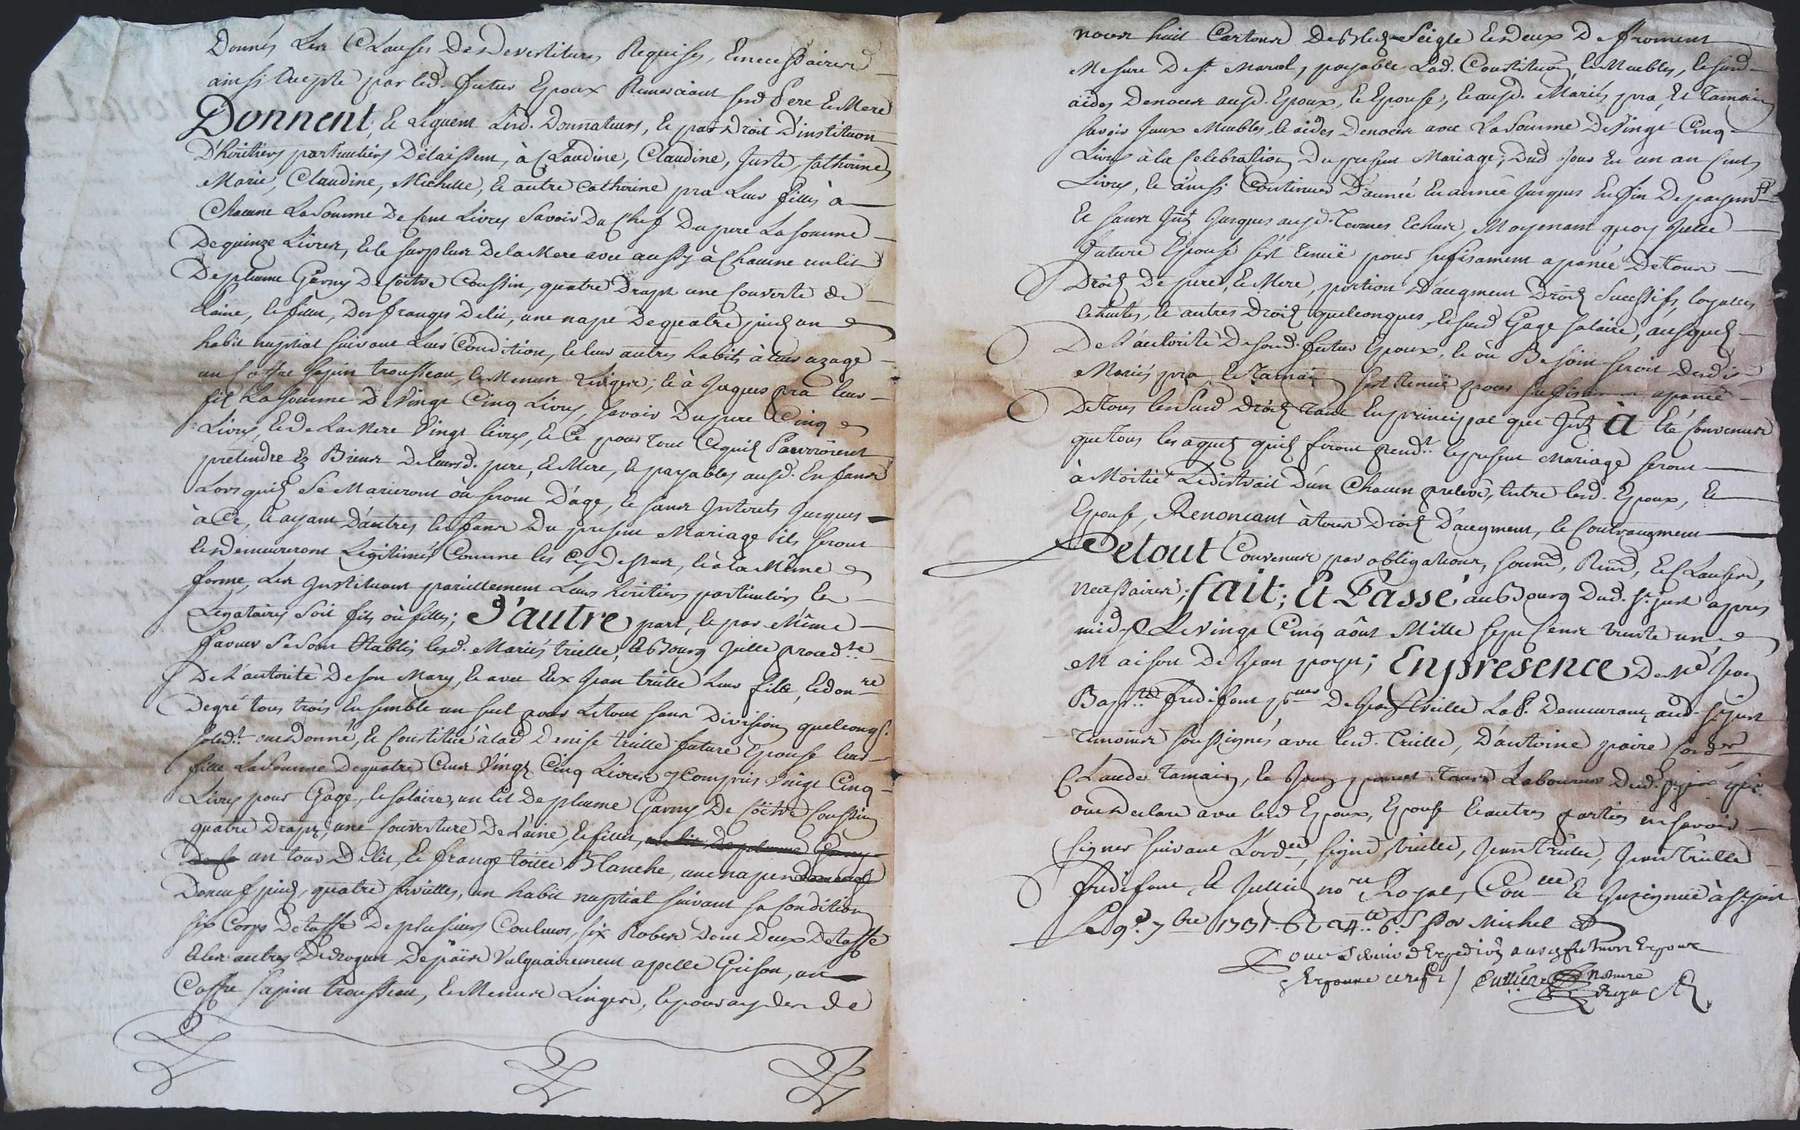 Donnés Les Clauses De Devestitures Requises, Et necessaires
ainsi Accepté par led. futur Epoux Remerciant sesd Pere Et Mere
Donnent, Et Leguent Lesd. Donnateurs, Et par Droit D'institution
D'héritiers particuliers Delaissent, à Claudine, Claudine, Juste, Catherine,
Marie, Claudine, Michelle, Et autre Catherine pra Leurs filles à
Chacune La Somme De Cent Livres Savoir Du Chef Du pere La Somme
De quinze Livres, Et le surplus De la Mere avec aussy à Chacune un lit
De plume Garny De Coitre Coussin, quatre Draps une Couverte de
Laine, Le filet, Des franges De lit, une nape De quatre pieds un
habit nuptial suivant Leur Condition, Et leurs autres habits à leurs uzage
un Coffre sapin trousseau, Et Menus Linges; Et à Jaques pra leur
fils La Somme De Vingt Cinq Livres, Savoir Du pere Cinq
Livres Et De La Mere Vingt Livres, Et Ce pour tout Ce quils Pourroient
pretendre Es Biens De leursd. pere, Et Mere, Et payables ausd. Enfans
Lors quils Se Marieront où seront D'age, Et sans Interets Jusques
à Ce, Et ayant D'autres Enfans Du present Mariage ils seront
Et Demeureront Legitimés Comme les Cy Dessus, Et à la Même
forme, Les Instituant pareillement Leurs héritiers particuliers Et
Legataires soit fils où filles; D'autre part, Et par Même
faveur Se Sont Etablis lesd. Mariés trülle, Et Bourg Jülle proced.te
De L'autorité De son Mary, Et avec Eux Jean trülle Leur fils, Led on.re
De gré tous trois Ensemble un seul pour Le tout sans Division quelconq.
solid.t ont Donné, Et Constitué à lad Denise trülle future Epouse leur
fille La Somme De quatre Cent Vingt Cinq Livres y Compris Vingt Cinq
Livres pour Gage, Et salaire, un lit De plume Garny De Coitre Coussin
quatre Draps, une Couverture De Laine, Et filet, un lit De plume Garny
De Co un tour De lit, Et frange toille Blanche, une nape
De neuf pieds, quatre serviettes, un habit nuptial suivant sa Condition
six Corps De taffe De plusieurs Couleurs, six Robes Dont Deux De taffe
Et les autres De Droguet De païs Vulguairement apellé Grison, un
Coffre sapin trousseau, Et Menus Linges, Et pour aydes de
noces huit Cartons De Bled Seigle Et Deux De froment
Mesure De St. Marcel, payable Lad. Constitution Et Meubles, Et susd
aides De noces ausd. Epoux, Et Epouse, Et ausd. Mariés pra, Et Tamain
Savoir Iceux Meubles, Et aides De noces avec La Somme De Vingt Cinq
Livres à la Celebration Du present Mariage; Dud Jour En un an Cent
Livres, Et ainsi Continuer D'année En année Jusques En fin De payem.t
Et sans Jnt. Jusques ausd. Termes Echus, Moyenant quoy Jcelle
future Epouse s'est tenuë pour sufisament apanée De tous
Droits De pere, Et Mere, portion D'augment Droits Successifs, loyalles
Echutes, Et autres Droits quelconques, Et sesd Gage salaire, ausquels
De L'autorité De sond. futur Epoux, Et où Besoin seroit Desd.
Mariés pra Et Tamain s'est tenuë pour sufisament apanée
De tous Lesusd Droits Tant En principal que Jnts A Eté Convenu
que tous les aquets quils feront pend.t Le present Mariage seront
à Moitié Le distrait D'un Chacun prelevé, Entre Lesd. Epoux, Et
Epouse, Renoncant à tous Droits D'augment, Et Contraugment
De tout Convenus par obligations, soumd, Rend, Et Clauses,
necessaires; fait; Et Passé, au Bourg Dud. St. Just apres
midy Le Vingt Cinq aôut Mille Sept Cent trente un
Maison De Jean poyet; En presence De Me Jean
Bap.te fredifont De Grosseville La P. Demeurant aud. St. Just
Temoins soussignés avec Lesd. Trülle, D'antoine poire
Claude Tamain, Et Laboureur Dud. St. Just qui
ont Declaré avec Lesd Epoux, Epouse Et autres parties ne savoir
signer suivant L'ord.e, signé, trülle, Jean trülle, Jean Trülle
fredifont, Et Jullin no.re Royal, Con.llé Et Insinuué à St. Just
Le 9.e 7.bre 1731.
 Michel
Pour Servir D'Expedition ausd futurs Epoux
Epouse Cutierre notaire
Royal